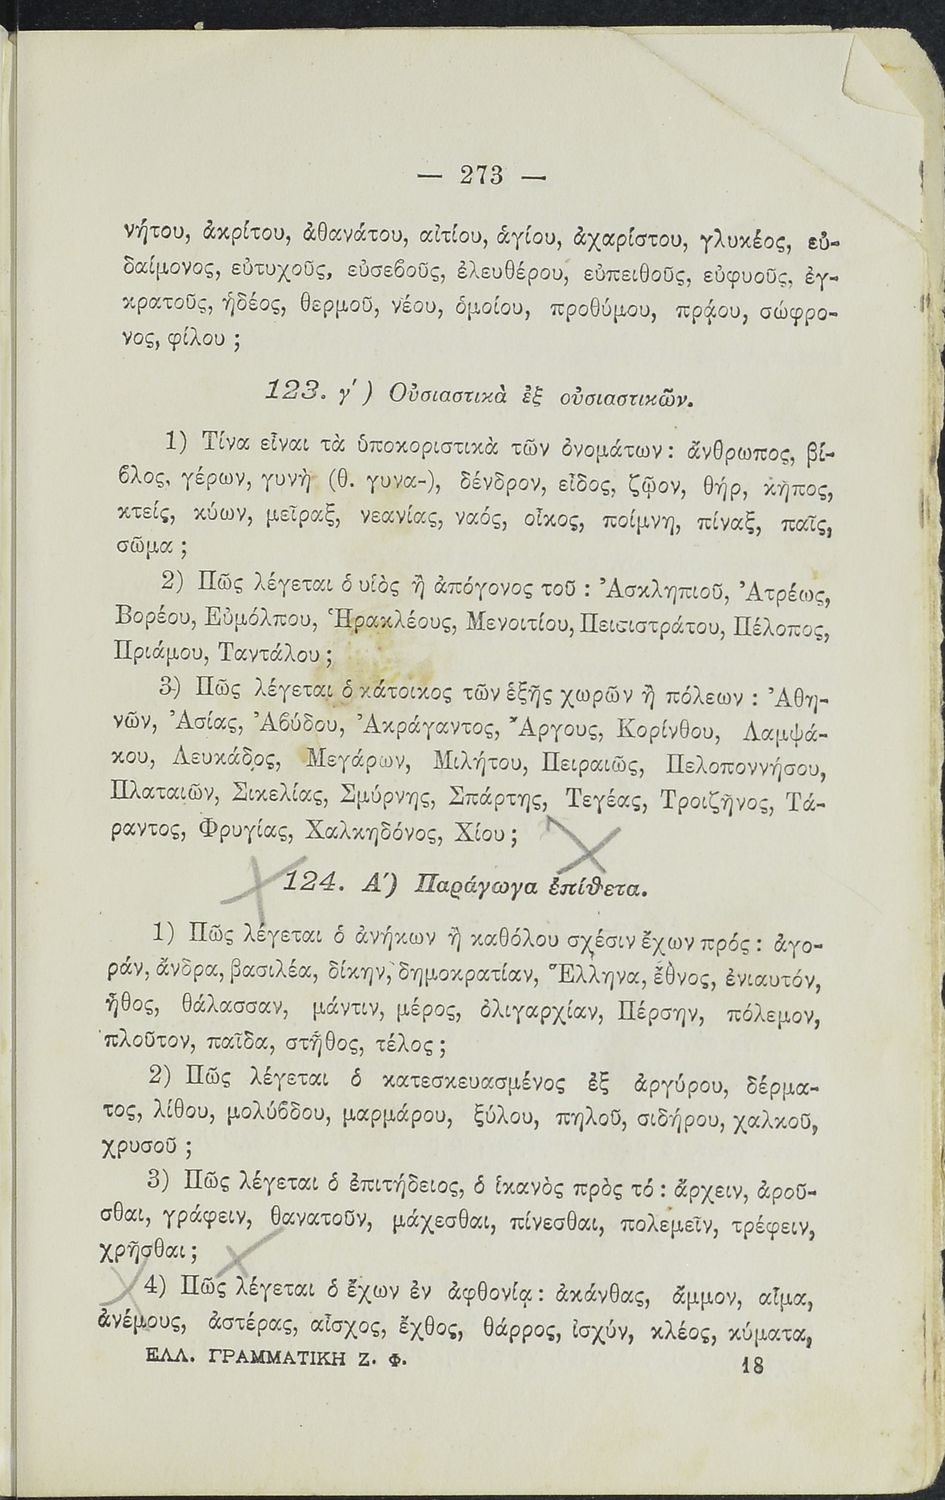 — 273 —
νήτου, ἀκρίτου, ἀθανάτου, αἰτίου, ἁγίου, ἀχαρίστου, γλυκέος, εὐ-
δαίμονος, εὐτυχοῦς, εὐσεβοῦς, ἐλευθέρου, εὐπειθοῦς, εὐφυοῦς, ἐγ-
κρατοῦς, ἡδέος, θερμοῦ, νέου, ὁμοίου, προθύμου, πράου, σώφρο-
νος, φίλου ;
123. γ΄) Οὐσιαστικὰ ἐξ οὐσιαστικῶν.
1) Τίνα εἶναι τὰ ὑποκοριστικὰ τῶν ὀνομάτων : ἄνθρωπος, βί-
βλος, γέρων, γυνὴ (θ. γυνα-), δένδρον, εἶδος, ζῷον, θήρ, κῆπος,
κτείς, κύων, μεῖραξ, νεανίας, ναός, οἶκος, ποίμνη, πίναξ, παῖς,
σῶμα ;
2) Πῶς λέγεται ὁ υἱὸς ἢ ἀπόγονος τοῦ : Ἀσκληπιοῦ, Ἀτρέως,
Βορέου, Εὐμόλπου, Ἡρακλέους, Μενοιτίου, Πεισιστράτου, Πέλοπος,
Πριάμου, Ταντάλου ;
3) Πῶς λέγεται ὁ κάτοικος τῶν ἑξῆς χωρῶν ἢ πόλεων : Ἀθη-
νῶν, Ἀσίας, Ἀβύδου, Ἀκράγαντος, Ἄργους, Κορίνθου, Λαμψά-
κου, Λευκάδος, Μεγάρων, Μιλήτου, Πειραιῶς, Πελοποννήσου,
Πλαταιῶν, Σικελίας, Σμύρνης, Σπάρτης, Τεγέας, Τροιζῆνος, Τά-
ραντος, Φρυγίας, Χαλκηδόνος, Χίου ;
124. Α΄) Παράγωγα ἐπίθετα.
1) Πῶς λέγεται ὁ ἀνήκων ἢ καθόλου σχέσιν ἔχων πρός : ἀγο-
ράν, ἄνδρα, βασιλέα, δίκην, δημοκρατίαν, Ἕλληνα, ἔθνος, ἐνιαυτόν,
ἦθος, θάλασσαν, μάντιν, μέρος, ὀλιγαρχίαν, Πέρσην, πόλεμον,
πλοῦτον, παῖδα, στῆθος, τέλος ;
2) Πῶς λέγεται ὁ κατεσκευασμένος ἐξ ἀργύρου, δέρμα-
τος, λίθου, μολύβδου, μαρμάρου, ξύλου, πηλοῦ, σιδήρου, χαλκοῦ,
χρυσοῦ ;
3) Πῶς λέγεται ὁ ἐπιτήδειος, ὁ ἱκανὸς πρὸς τό : ἄρχειν, ἀροῦ-
σθαι, γράφειν, θανατοῦν, μάχεσθαι, πίνεσθαι, πολεμεῖν, τρέφειν,
χρῆσθαι ;
4) Πῶς λέγεται ὁ ἔχων ἐν ἀφθονίᾳ : ἀκάνθας, ἄμμον, αἷμα,
ἀνέμους, ἀστέρας, αἶσχος, ἔχθος, θάρρος, ἰσχύν, κλέος, κύματα,
ΕΛΛ. ΓΡΑΜΜΑΤΙΚΗ Ζ. Φ. 18